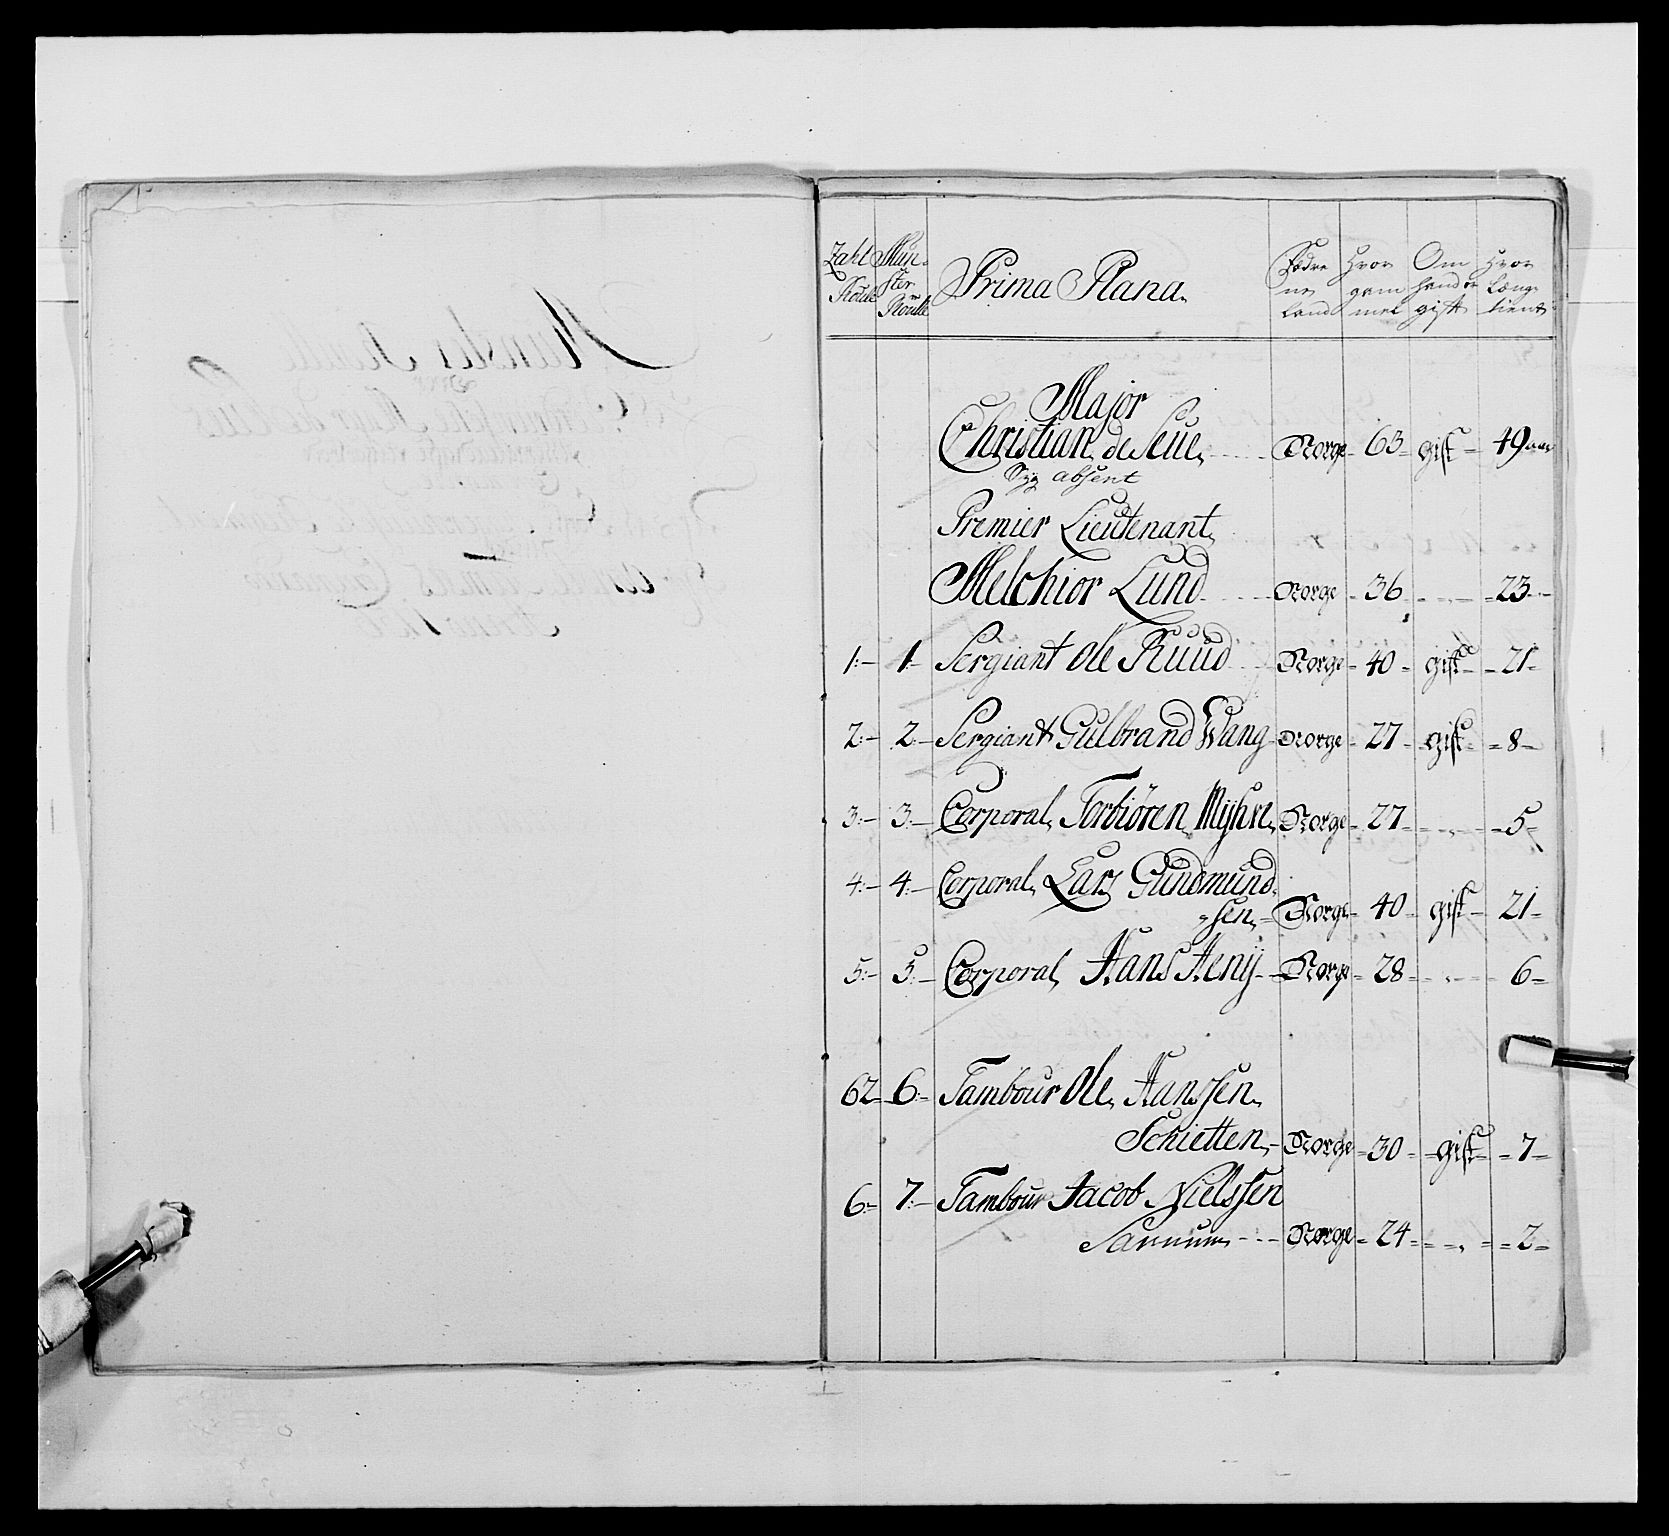 Zahl Roulle
Mun-ster Roulle
Prima Plana.
Fædrene land
Hvor gammel
Om hand er gift
Hvor længe tient
Major
Christian de Seue, Norge 63 gift 49 aar
Syg absent
Premier Lieutenant,
Melchior Lund Norge 36 23
1 1 Sergiant Ole Ruud Norge 40 gift 21
2 2 Sergiant Gulbrand Wang Norge 27 gift 8
3 3 Corporal, Torbiören Myhre, Norge 27 5
4 4 Corporal, Lars Gundmund-
sen, Norge 40 gift 21
5 5 Corporal, Hans Henij Norge 28 6
62 6 Tambour Ole Hanssen
Schietten, Norge 30 gift 7
6 7 Tambour Jacob Nielssen
Norge 24 2